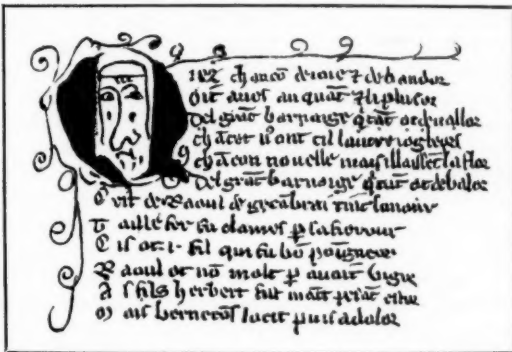 Oiez chancō de ioie ⁊ de baudor
Oït aves auquāt ⁊ li plusor
Del grāt barnaige q̄ tāt ot de vallor
Chātet vos ont cil autre iogleor
Chācon nouelle mais il laissēt la flor
Del grāt barnaige q̄ tāt ot de valor
C est de Raoul de tint lonour
T aillefer fu clames ꝑ sa fierour
C is ot .i. fil qui fu bō poigneour
R aoul ot nō molt ꝑ auoit vigor
A s fils herbert fist māt pesāt estor
M ais bernecōs locit puis a dolor